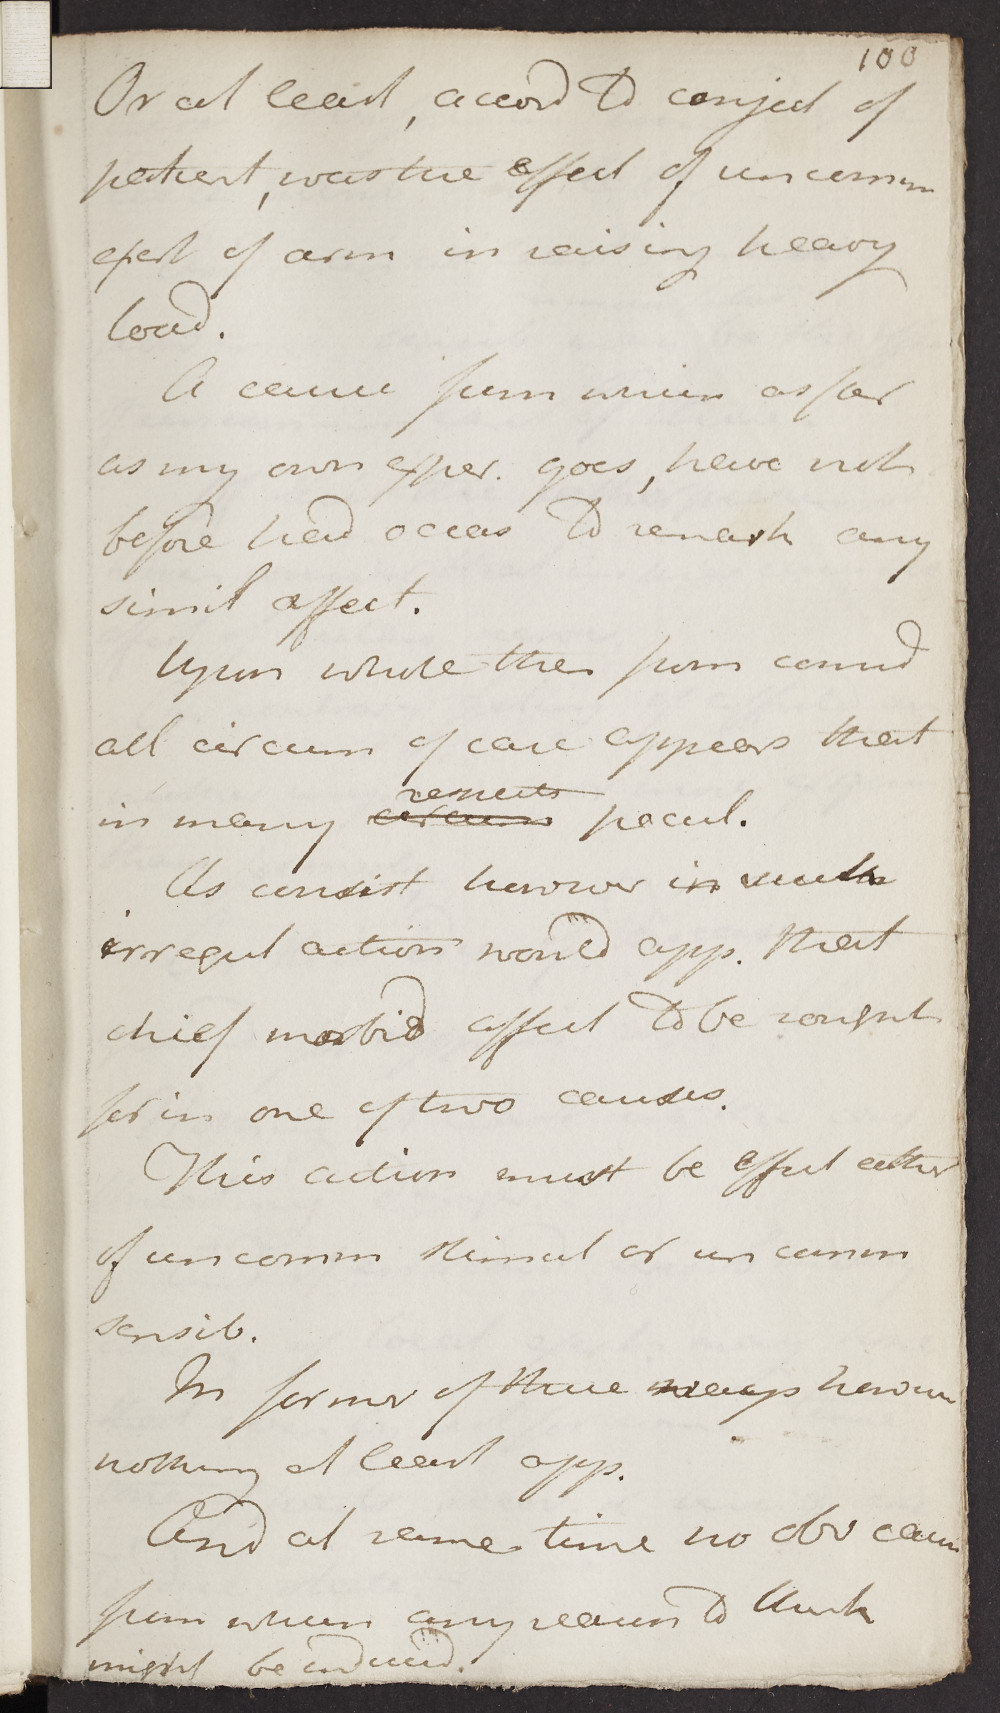 100
Or at least, accord to conject of
patient, was the effect of uncomm
exert of arm in raising heavy
load.
A cause from which as far
as my own exper. goes, have not
before had occas to remark any
simil effect.
Upon whole then from consid
all circum of case appears that
in many circum respects pecul.
As consist however in much
irregul action would app. that
chief morbid affect to be sought
for in one of two causes.
This action must be effect either
of uncomm stimul or uncomm
sensib.
In former of these ways however
nothing at least app.
And at same time no obv cause
from whom any reason to think
might be induced.